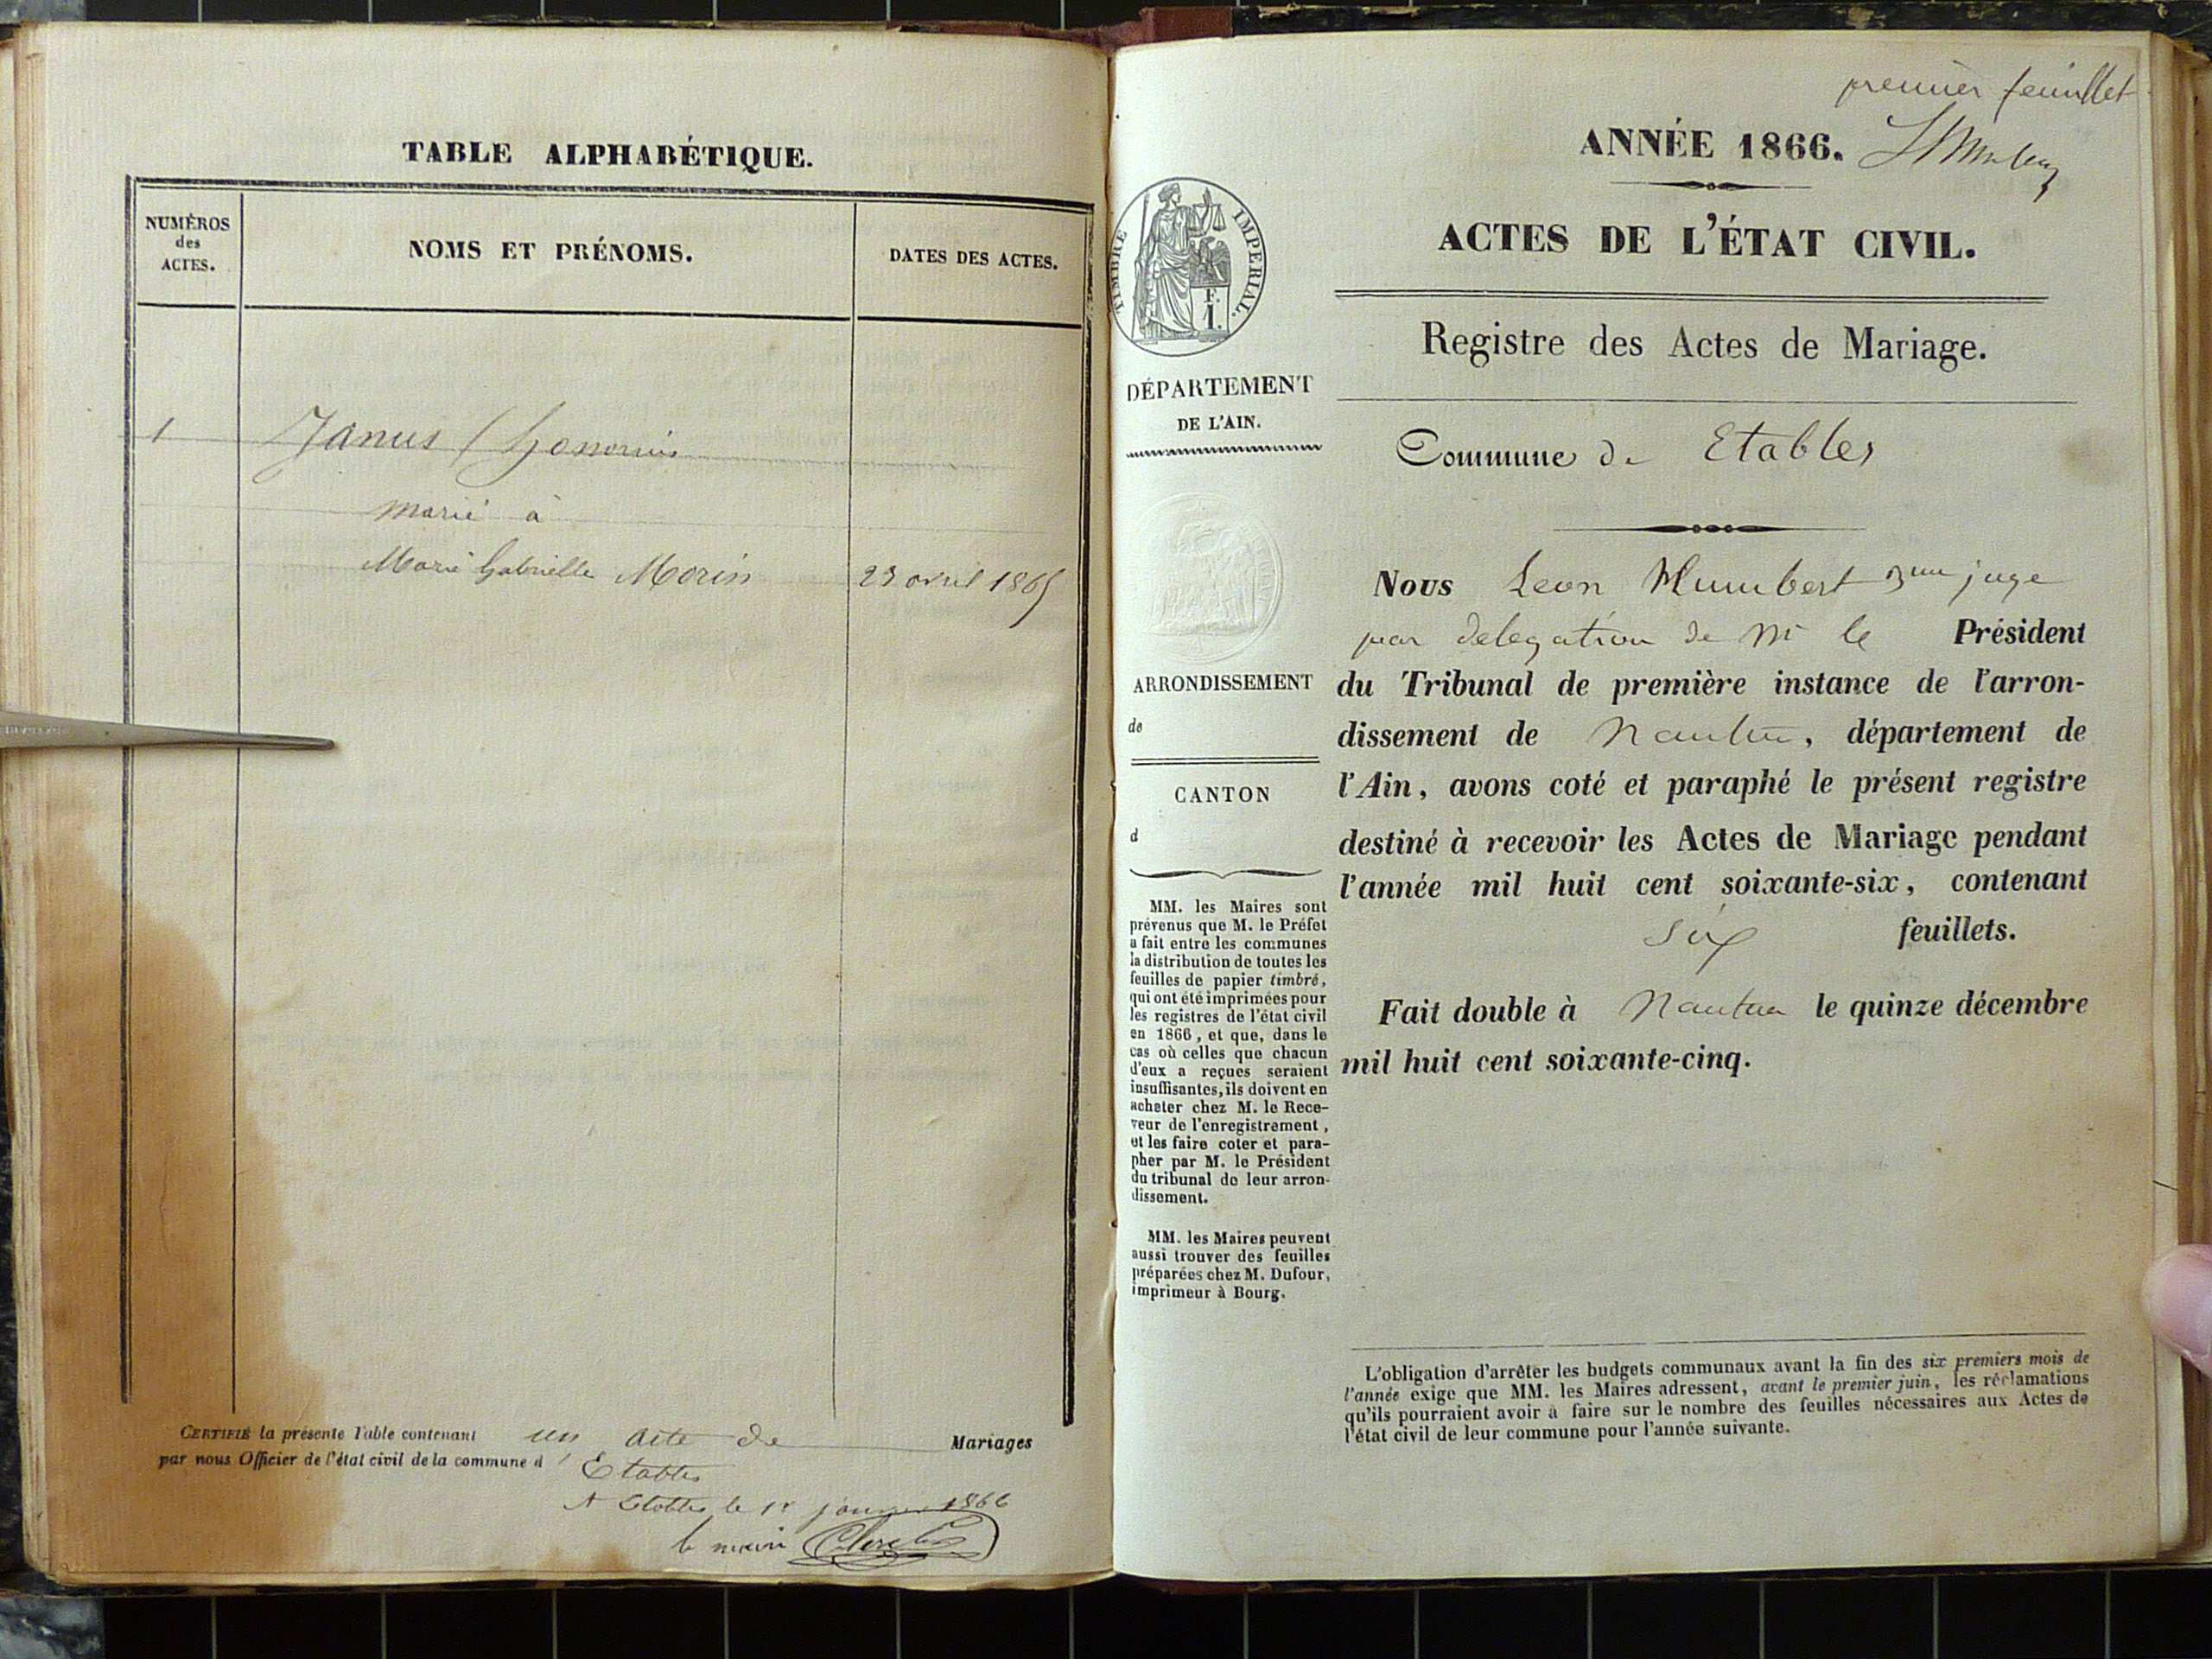 TABLE ALPHABÉTIQUE.
NUMÉROS
des
ACTES.
NOMS ET PRÉNOMS.
DATES DES ACTES.
1 Janus (honorius
marié à
Marie Gabrielle Morin 23 avril 1865
CERTIFIÉ la présente Table contenant un acte de Mariages
par nous Officier de l'état civil de la commune d' Etables
A Etables le 1r janvier 1866
le maire
premier feuillet
ANNÉE 1866.
ACTES DE L'ÉTAT CIVIL.
Registre des Actes de Mariage.
Commune de Etables
TIMBRE IMPÉRIAL.
F.
1.
DÉPARTEMENT
DE L'AIN.
ARRONDISSEMENT
de
CANTON
d
MM. les Maires sont
prévenus que M. le Préfet
a fait entre les communes
la distribution de toutes les
feuilles de papier timbré,
qui ont été imprimées pour
les registres de l'état civil
en 1866, et que, dans le
cas où celles que chacun
d'eux a reçues seraient
insuffisantes, ils doivent en
acheter chez M. le Rece-
veur de l'enregistrement,
et les faire coter et para-
pher par M. le Président
du tribunal de leur arron-
dissement.
MM. les Maires peuvent
aussi trouver des feuilles
préparées chez M. Dufour,
imprimeur à Bourg.
Nous Leon Humbert juge
par delegation de Mr le Président
du Tribunal de première instance de l'arron-
dissement de Nantua, département de
l'Ain, avons coté et paraphé le présent registre
destiné à recevoir les Actes de Mariage pendant
l'année mil huit cent soixante-six, contenant
six feuillets.
Fait double à Nantua le quinze décembre
mil huit cent soixante-cinq.
L'obligation d'arrêter les budgets communaux avant la fin des six premiers mois de
l'année exige que MM. les Maires adressent, avant le premier juin, les réclamations
qu'ils pourraient avoir à faire sur le nombre des feuilles nécessaires aux Actes de
l'état civil de leur commune pour l'année suivante.